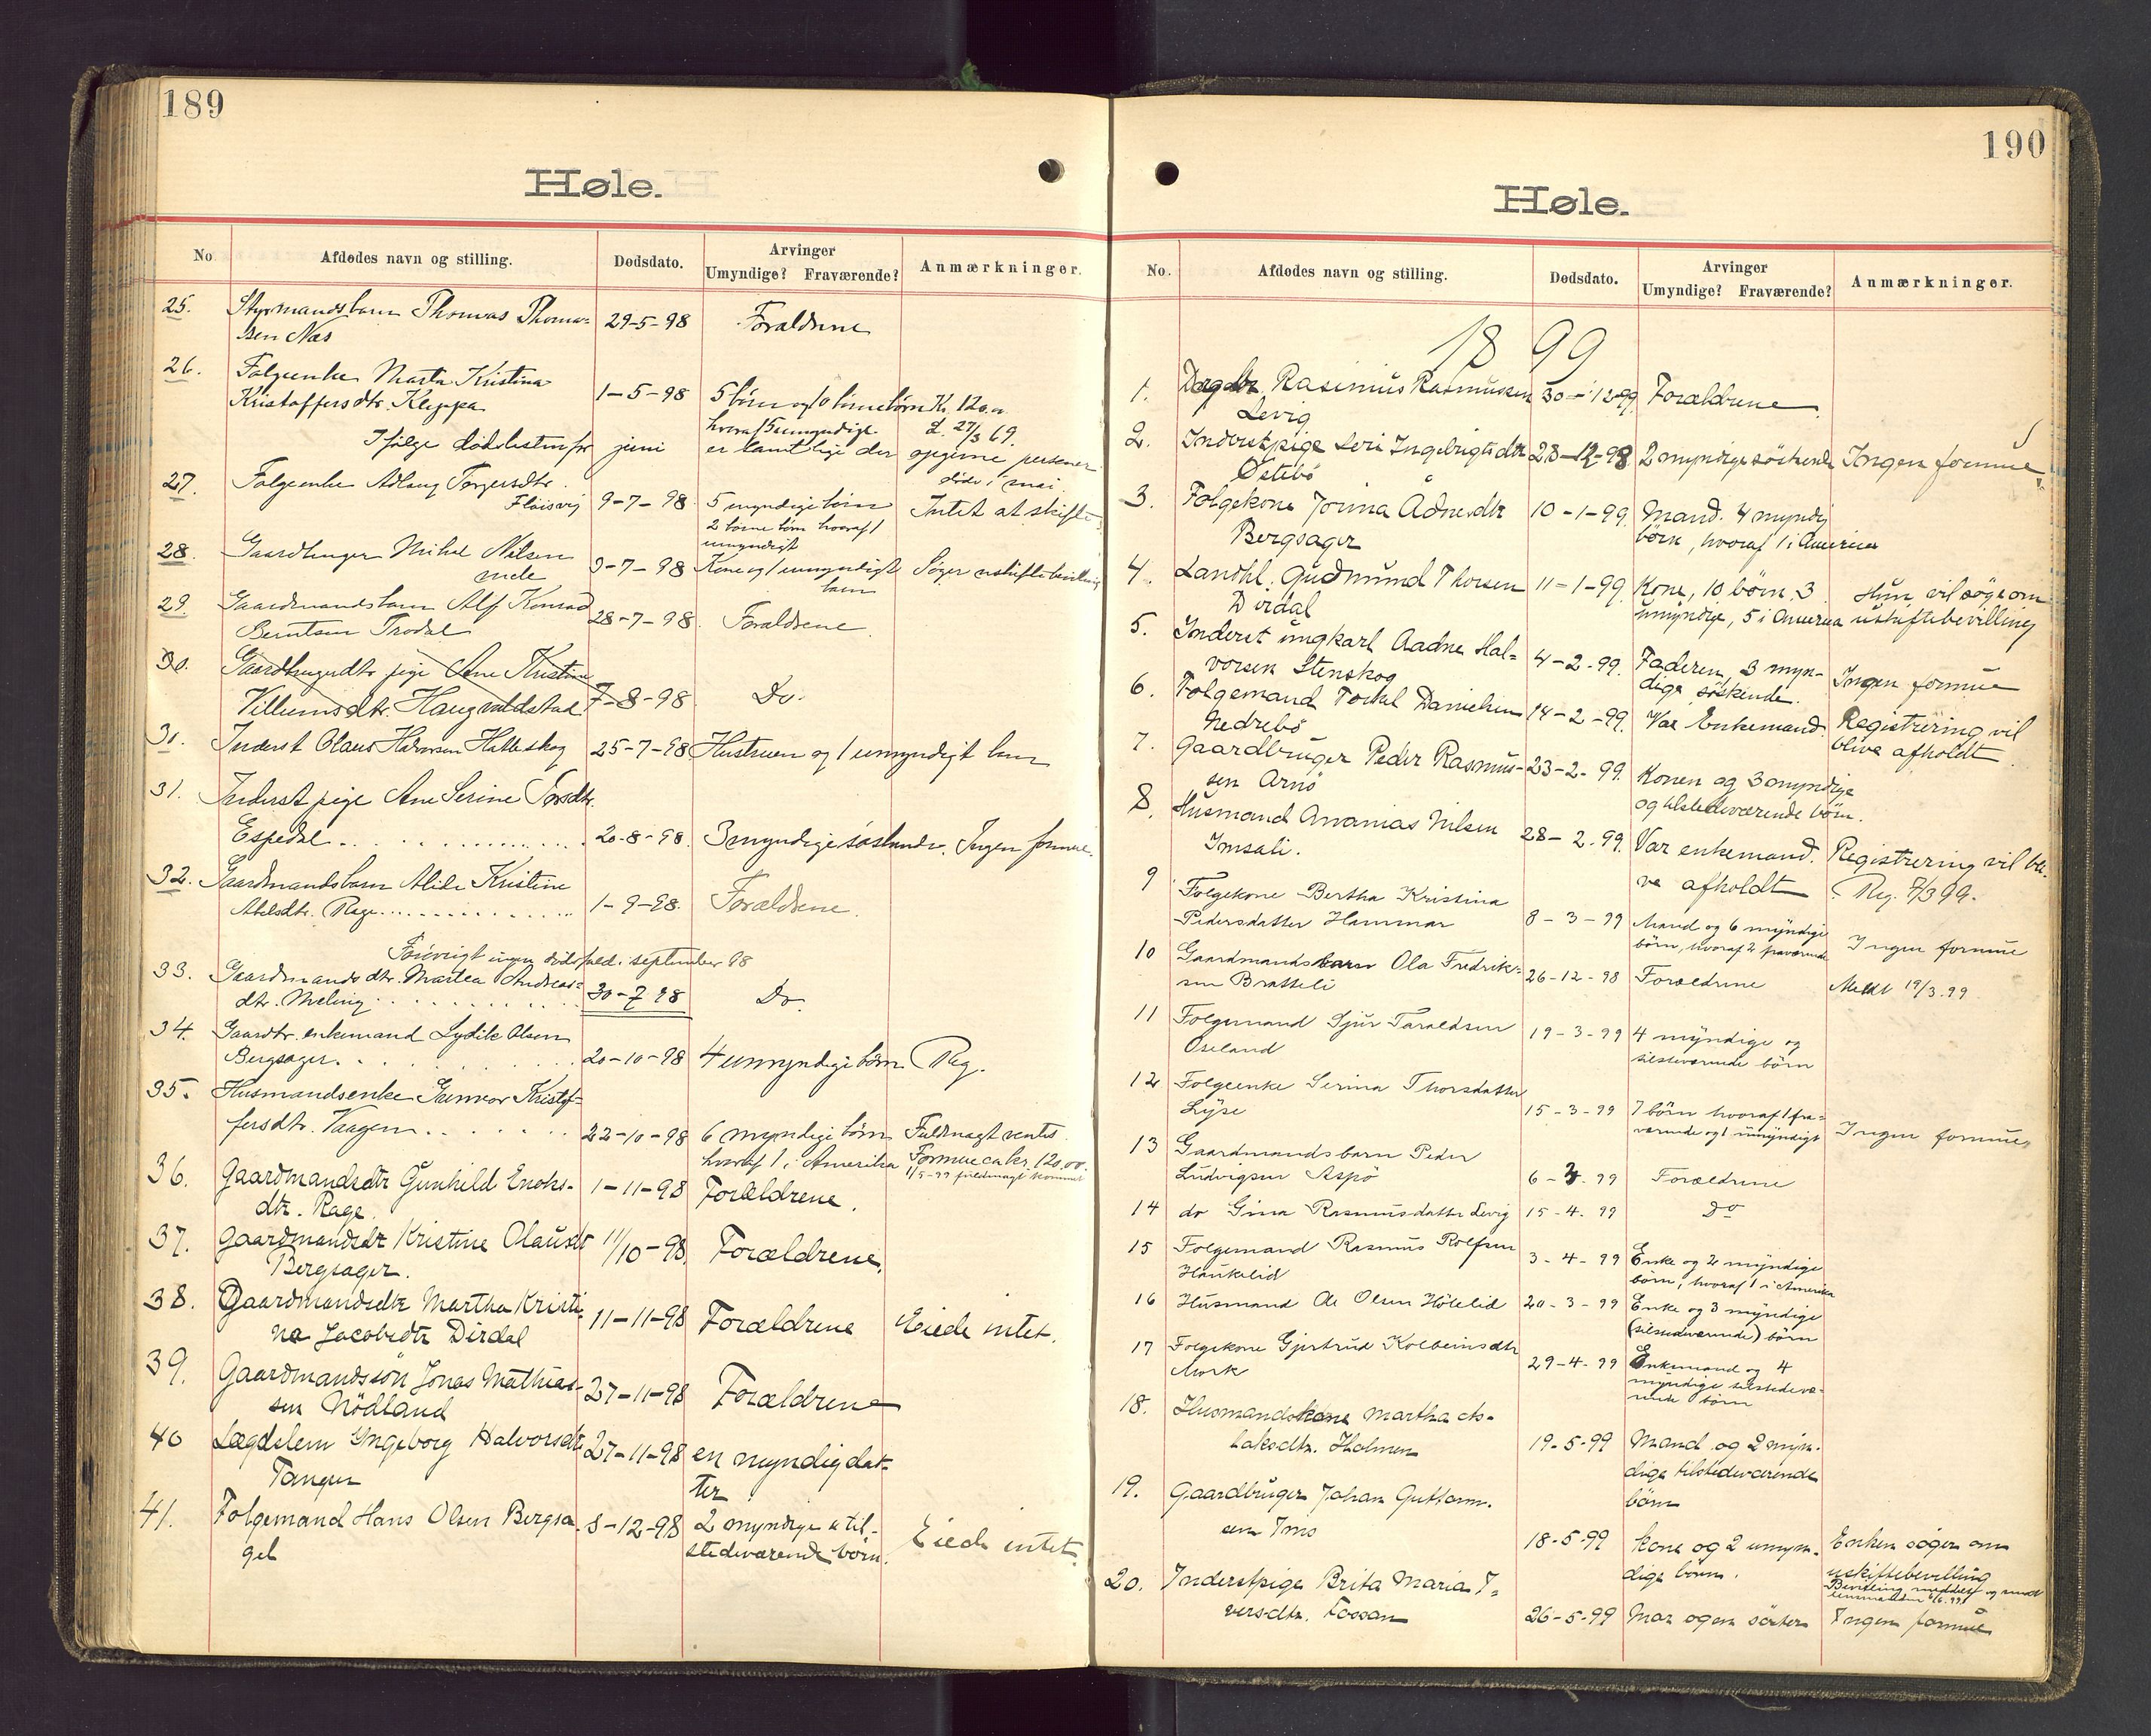 189
Høle.
No Afdødes navn og stilling. Dødsdato. Arvinger Umyndige? Fraværende? Anmærkninger.
25. Styrmandsbarn Thomas Thoma=
sen Næs 29-5-98 Forældrene
26. Folgeenke Marta Kristina
Kristoffersdtr. Kleppa 1-5-98 5 børn og 10 børnebørn Kr. 120.00
hvoraf 5 umyndige. d. 27/3 69.
Ifølge dødslisten for juni er samtlige der opgivne personer
døde i mai.
27. Folgeenke Adlaug Torgersdtr.
Fløisvig 9-7-98 5 myndige børn Intet at skifte
2 børnebørn hvoraf 1
umyndigt
28. Gaardbruger Mikal Nilsen
Mele 9-7-98 Kone og 1 umyndigt Søger uskiftebevilling
barn
29. Gaardmandsbarn Alf Konrad
Berntsen Frodal 28-7-98. Forældrene.
30. Gaardbrugerdtr pige Ane Kristine
Villumsdtr. Haugmldstad 7-8-98 Do.
30. Inderst Olaus Halvorsen Halleskog 25-7-98 Hustruen og 1 umyndigt barn
31. Inderst pige Ane Serine Torsdtr.
Espedal 20-8-98. 3 myndige søskende. Ingen formue.
32. Gaardmandsbarn Alida Kristine
Abelsdtr. Rage 1-9-98. Forældrene.
Forøvrigt ingen dødsfald i september 98
33. Gaardmandsdtr. Martea Andreas=
dtr. Meling 30-7 98 Do.
34. Gaardbr. enkemand Lydik Olsen
Bergsager 20-10-98 4 umyndige børn. Reg.
35. Husmandsenke Gunvor Kristof=
fersdtr. Vaagen 22-10-98 6 myndige børn Fuldmagt ventes.
hvoraf 1 i Amerika Formue ca kr. 120.00.
1/5-99 fuldmagt kommet
36. Gaardmandsdtr Gunhild Enoks-
dtr. Rage. 1-11-98 Forældrene.
37. Gaardmandsdtr Kristine Olausdt
Bergsager. 11/10-98. Forældrene.
38. Gaardmandsdtr Martha Kristi
na Jacobsdtr Dirdal 11-11-98 Forældrene Eiede intet.
39. Gaardmandssøn Jonas Mathias-
sen Nødland 27-11-98 Forældrene
40 Lægdslem Yngeborg Halvorsdtr
Tangen 27-11-98 en myndig dat-
ter
41. Folgemand Hans Olsen Bergsa
gel 8-12-98 2 myndige & til-
stedeværende børn. Eiede intet.
190
Høle.
No. Afdødes navn og stilling. Dødsdato. Arvinger Umyndige? Fraværende? Anmærkninger.
1899
1. Rasmus Rasmussen 30-12-99. Forældrene.
Levig
2. Inderstpige Seri Ingebrigtsdtr 23-12-98. 2 myndige søskende Ingen formue
Østebø
3. Folgekone Jorina Ådnesdtr 10-1-99. Mand. 4 myndig
Bergsager børn, hvoraf 1 i America
4. Landhl. Gudmund Thorsen 11-1-99. Kone, 10 børn. 3 Hun vil søge om
Dirdal umyndige, 5 i America uskiftebevilling
5. Inderst ungkarl Aadne Hal=
vorsen Stenskog 4-2-99. Faderen, 3 myn- Ingen formue
dige søskende.
6. Folgemand Torkel Danielsen 14-2-99. Var Enkemand. Registrering vil
Nedrebø blive afholdt.
7. Gaardbruger Peder Rasmus- 23-2-99. Konen og 3 myndige
sen Arnø og tilstedeværende børn.
8. Husmand Ananias Nilsen 28-2.99. Var enkemand. Registrering vil bli-
Imsali. ve afholdt Reg. 7/3 99.
9 Folgekone Bertha Kristina
Pedersdatter Hammar 8-3-99 Mand og 6 myndige
børn, hvoraf 2 fraværende Ingen formue
10 Gaardmandsbarn Ola Fredrik=
sen Bratteli 26-12-98 Forældrene Meldt 19/3.99.
11 Folgemand Sjur Taraldsen 19-3-99 4 myndige og
Oseland tilstedeværende børn
12 Folgeenke Serina Thorsdatter
Lyse 15-3-99 7 børn hvoraf 1 fra=
værende og 1 umyndigt Ingen formue.
13 Gaardmandsbarn Peder
Ludvigsen Aspø 6-3.99 Forældrene
14 do Gina Rasmusdatter Levig 15-4.99 Do
15 Folgemand Rasmus Rolfsen
Haukelid 3-4-99 Enke og 2 myndige
børn, hvoraf 1 i Amerika
16 Husmand Ole Olsen Hølelid 20-3-99 Enke og 3 myndige
(tilstedværende) børn
17 Folgekone Gjertrud Kolbeinsdtr
Mork 29-4-99 Enkemand og 4
myndige tilstedevæ-
rende børn
18. Husmandskone Martha As-
laksdtr. Holmen 19-5-99 Mand og 2 myn-
dige tilstedeværende
børn
19. Gaardbruger Johan Guttorm-
sen Ims 18-5-99 kone og 2 umyn- Enken søger om
dige børn. uskiftebevilling
Bevilling meddelt og sendt
lensmanden 9/6.99
20. Inderstpige Brita Maria I=
versdtr. Fossan 26-5-99 Mor og en søster Ingen formue